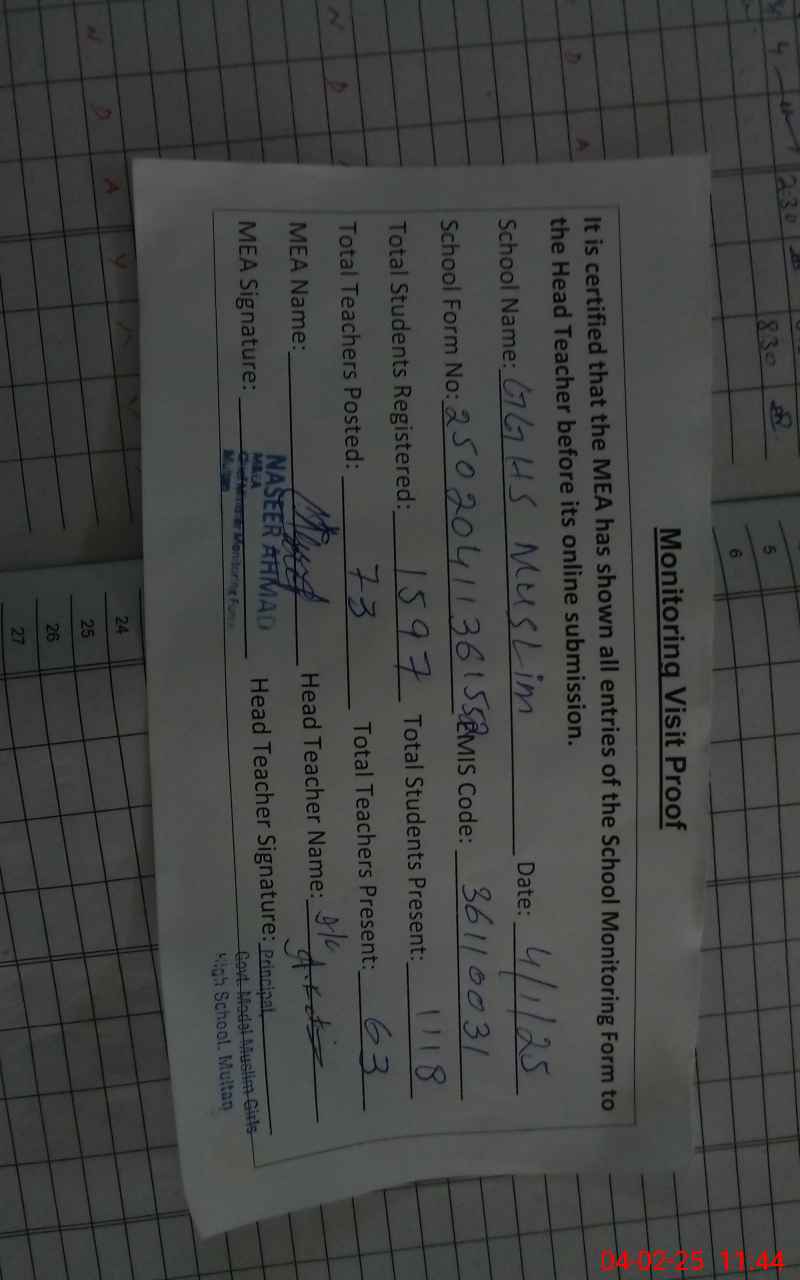 Monitoring Visit Proof
It is certified that the MEA has shown all entries of the School Monitoring Form to
the Head Teacher before its online submission.
School Name: GGHS Muslim Date: 4/1/25
School Form No: EMIS Code: 36110031
Total Students Registered: 1597 Total Students Present: 1118
Total Teachers Posted: 73 Total Teachers Present: 63
MEA Name: Head Teacher Name:
MEA Signature: Head Teacher Signature:
NASEER AHMAD
M&EA
Chief Minister Monitoring Force
Multan
Principal,
Govt. Model Muslim Girls
High School. Multan
5
6
24
25
26
27
2:30
830
N D A
N D
D A
04-02-25 11:44